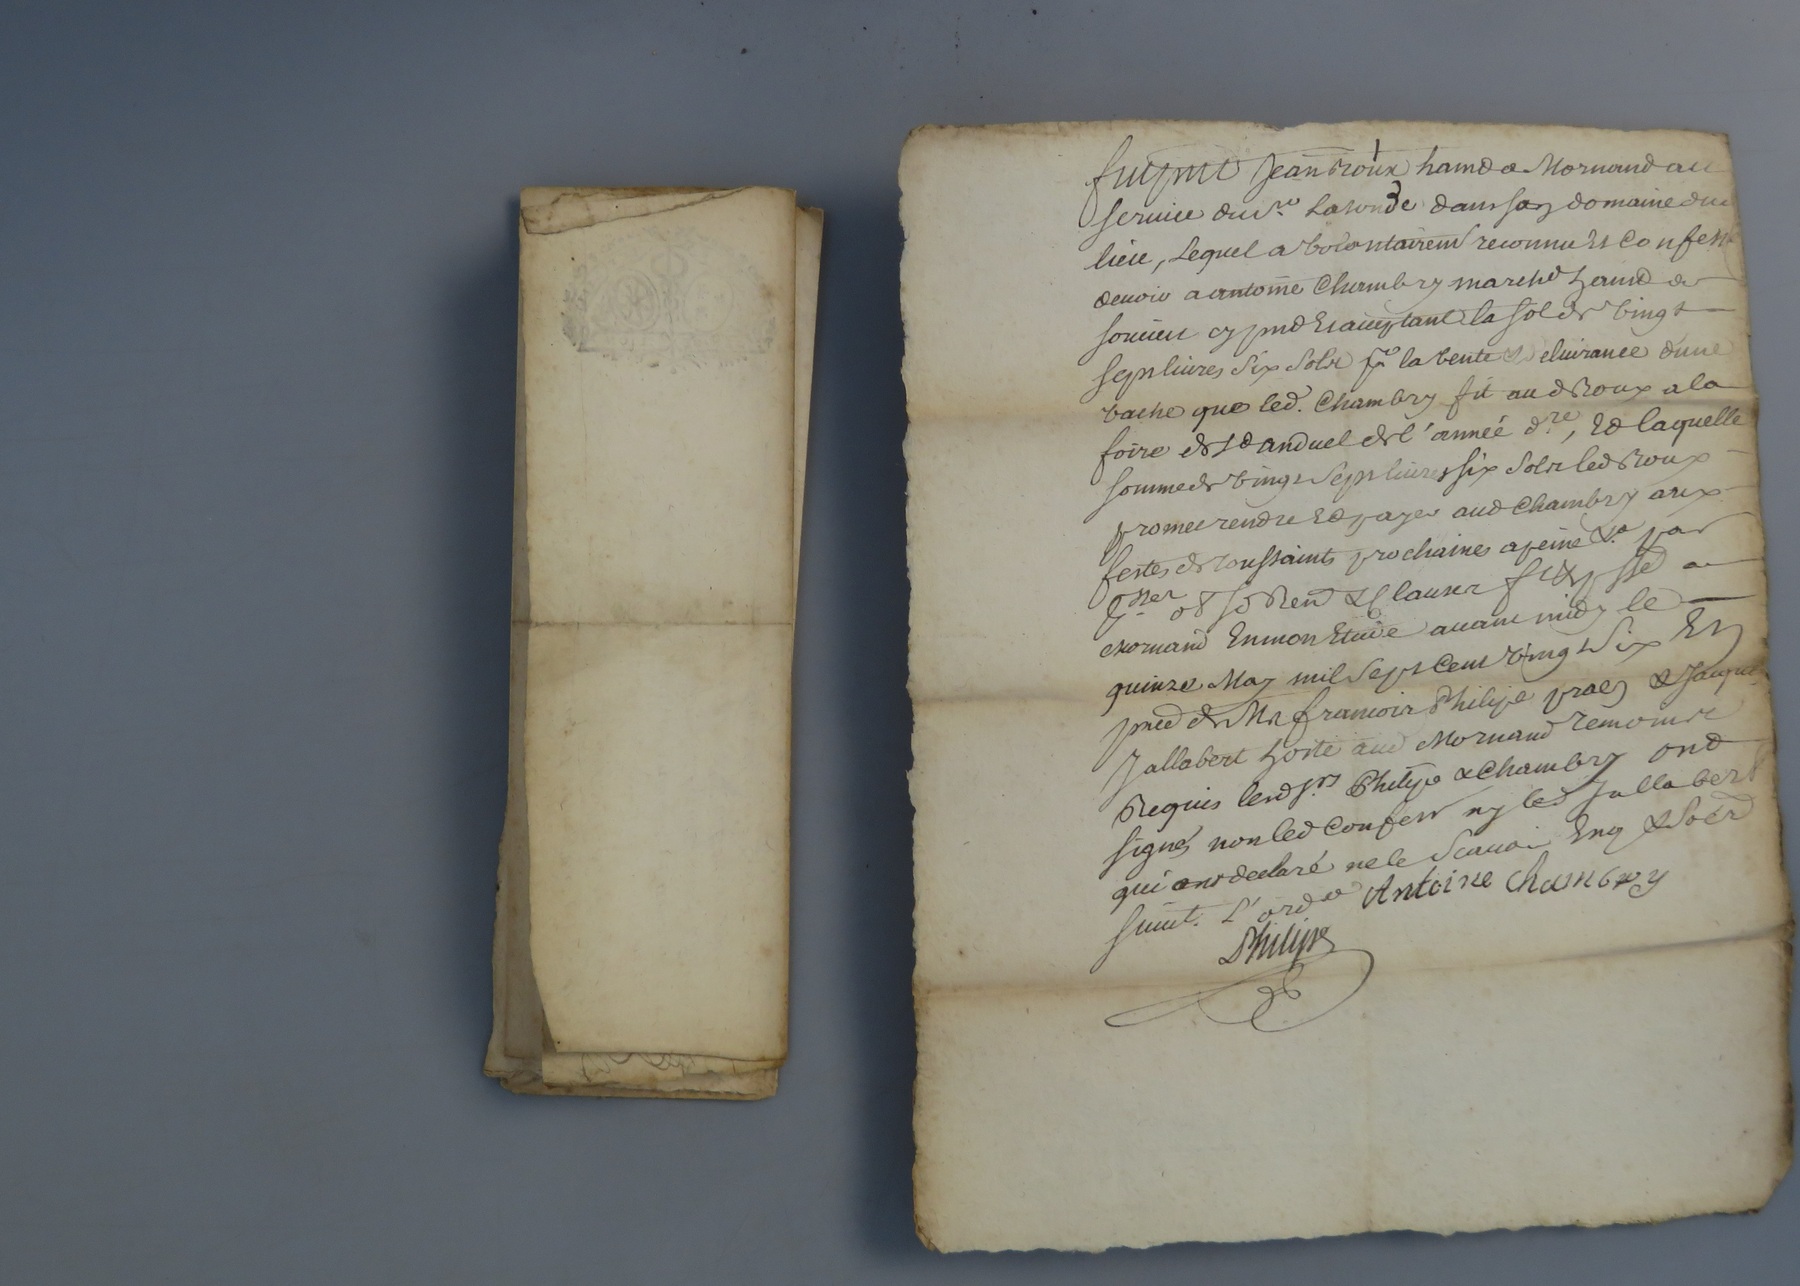 fut pnt Jean Roux hant de Mornand au
service du sr. Lafonde dans son domaine dud
lieu, Lequel a volontairemt reconnu et Confessé
devoir a antoine Chambry marcht hant de
cy pnt et acceptant la so͞e de vingt
sept livres six solz pr la vente & delivrance d'une
vache que led. Chambry fit aud Roux a la
foire de de l'année dre, Et laquelle
somme de vingt sept livres six solz led Roux
promet rendre Et payer aud Chambry aux
festes de toussaints prochaines a peine &a par
& clauses fait & passé a
Mornand En mon Etude avant midy le
quinze May mil Sept Cent vingt Six En
pnce de Mr francois Philipe & Jaque
Jallabert hoste aud Mornand temoins
Requis lesd srs Philipe & Chambry ont
signés non led Confess ny led Jallabert
qui ont declaré ne le Scavoir Enq &
suivt. L'orde Antoine Chambry
Philipe